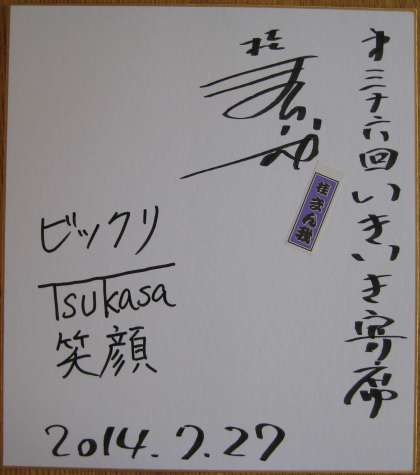 才三十六回いきいき寄席
桂
桂まん我
ビックリ
Tsukasa
笑顔
2014.7.27